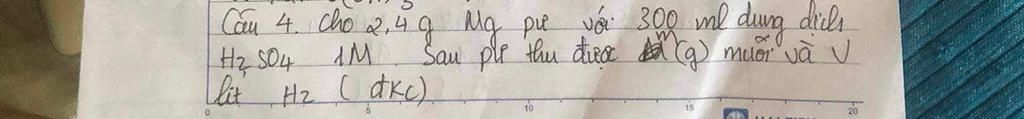 Câu 4. Cho 2,4 g Mg pư với 300 ml dung dịch
H2SO4 1M. Sau pư thu được m (g) muối và V
lít H2 (đkc)
0 5 10 15 20